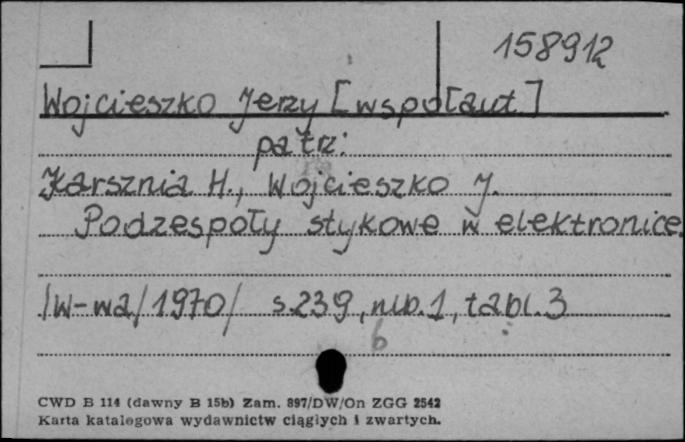 158912
Wojcieszko Jerzy [współaut.]
patrz:
Karsznia H., Wojcieszko J.
Podzespoły stykowe w elektronice.
/W-wa/1970/ s.239, nlb.1, tabl.3
6
CWD B 114 (dawny B 15b) Zam. 897/DW/On ZGG 2542
Karta katalogowa wydawnictw ciągłych i zwartych.